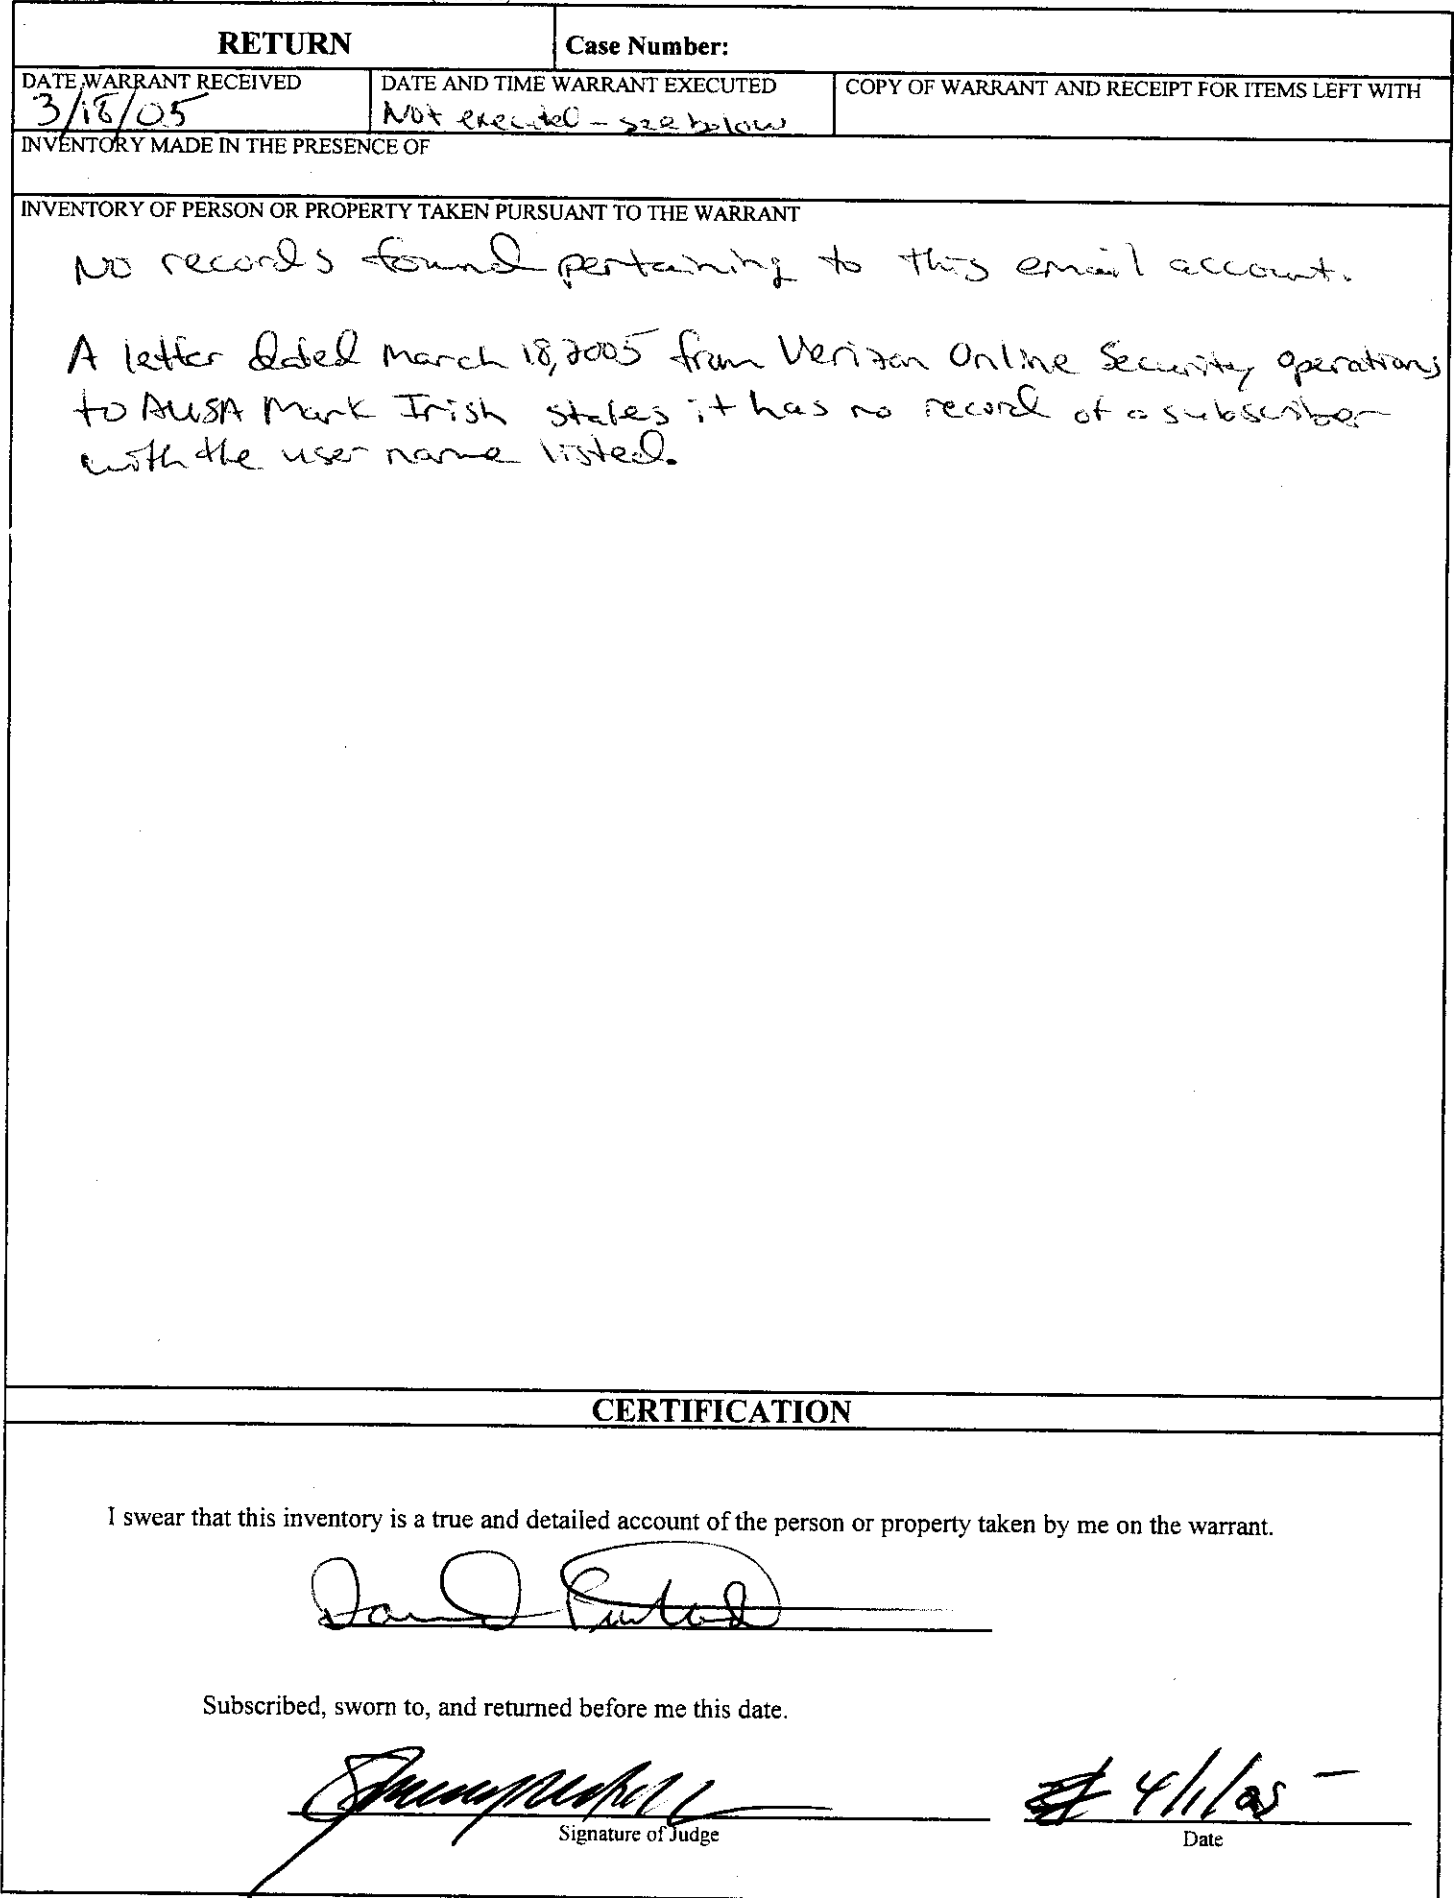 RETURN
Case Number:
DATE WARRANT RECEIVED
3/18/05
DATE AND TIME WARRANT EXECUTED
Not executed - see below
COPY OF WARRANT AND RECEIPT FOR ITEMS LEFT WITH
INVENTORY MADE IN THE PRESENCE OF
INVENTORY OF PERSON OR PROPERTY TAKEN PURSUANT TO THE WARRANT
No records found pertaining to this email account.
A letter dated March 18, 2005 from Verizon Online Security Operations
to AUSA Mark Irish states it has no record of a subscriber
with the user name listed.
CERTIFICATION
I swear that this inventory is a true and detailed account of the person or property taken by me on the warrant.
Subscribed, sworn to, and returned before me this date.
4/1/05
Signature of Judge
Date